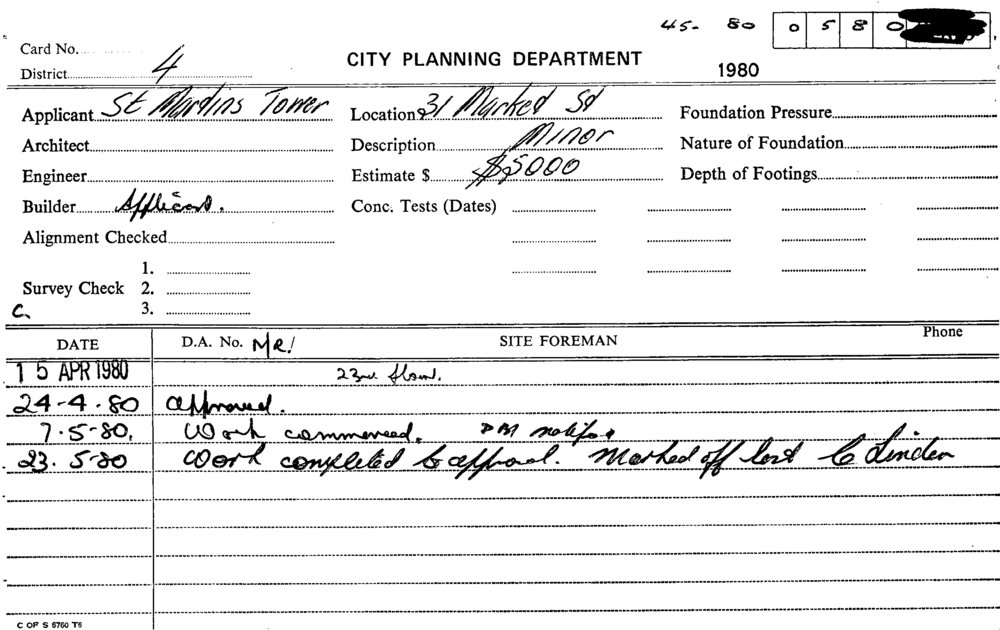 45- 80 0 5 8 0
Card No.
District 4
CITY PLANNING DEPARTMENT
1980
Applicant St Martins Tower
Location 31 Market St
Foundation Pressure
Architect
Description Minor
Nature of Foundation
Engineer
Estimate $ $5000
Depth of Footings
Builder Applicant.
Conc. Tests (Dates)
Alignment Checked
1.
Survey Check 2.
C. 3.
DATE D.A. No. MR! SITE FOREMAN Phone
15 APR 1980 23rd floor.
24-4-80 approved.
7-5-80. Work commenced.
23.5-80 Work completed to approval. Marked off C Linden
C OF S 6760 T6